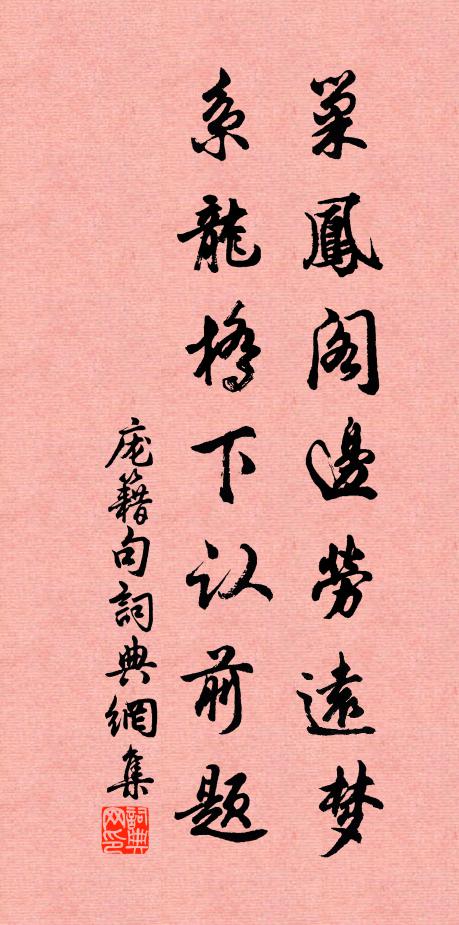 巢鳳阁邊勞遠梦
系龍橋下认前题
庞籍句詞典網集
詞典网印